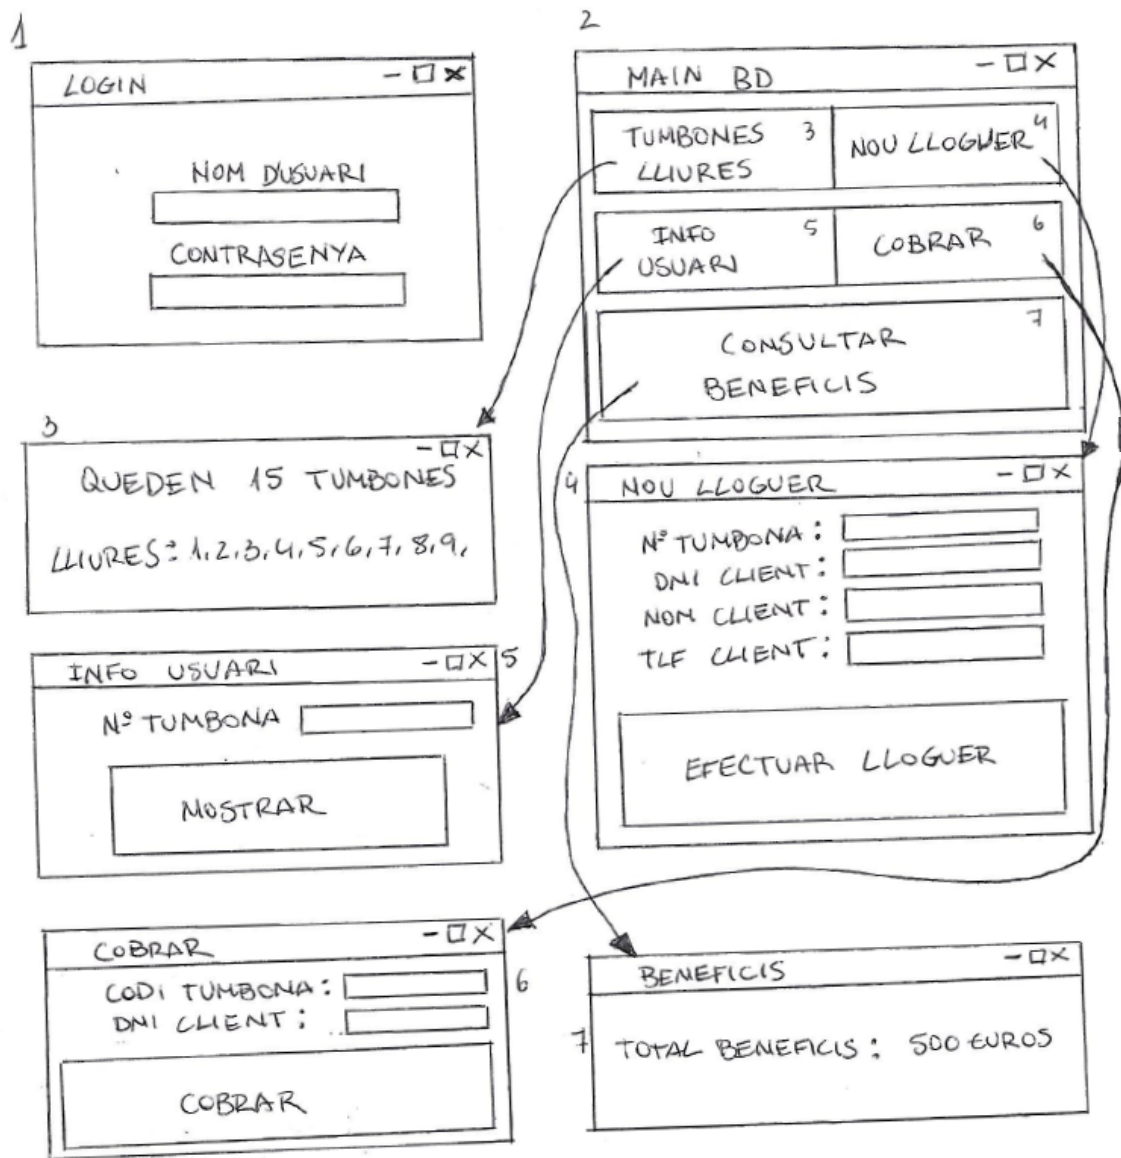 1
LOGIN
NOM D'USUARI
CONTRASENYA
2
MAIN BD
TUMBONES 3
LLIURES
NOU LLOGUER 4
INFO 5
USUARI
COBRAR 6
7
CONSULTAR
BENEFICIS
3
QUEDEN 15 TUMBONES
LLIURES: 1,2,3,4,5,6,7,8,9,
4
NOU LLOGUER
Nº TUMBONA:
DNI CLIENT:
NOM CLIENT:
TLF CLIENT:
EFECTUAR LLOGUER
5
INFO USUARI
Nº TUMBONA
MOSTRAR
COBRAR
6
CODI TUMBONA:
DNI CLIENT:
COBRAR
BENEFICIS
7
TOTAL BENEFICIS: 500 EUROS